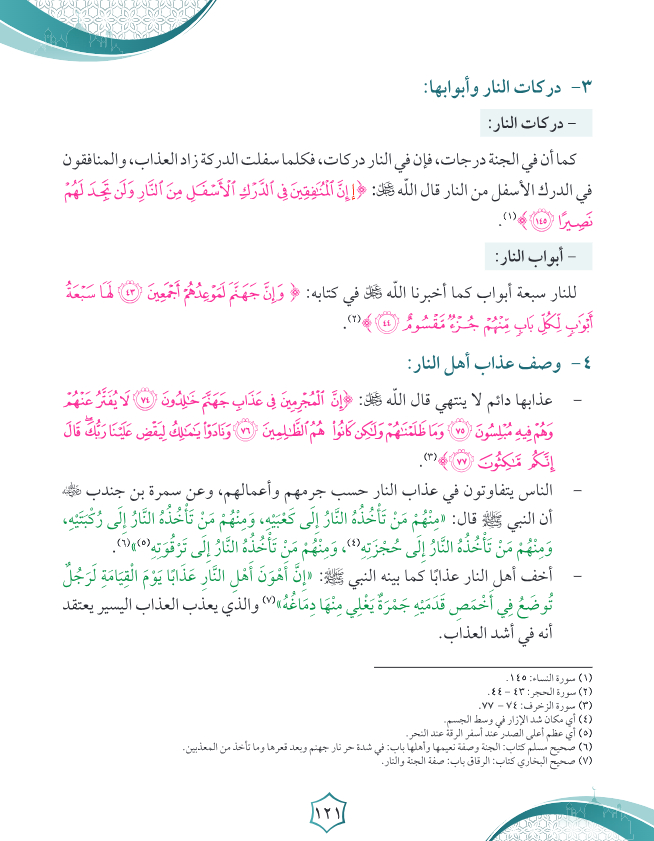 ٣- دركات النار وأبوابها:
- دركات النار:
كما أن في الجنة درجات، فإن في النار دركات، فكلما سفلت الدركة زاد العذاب، والمنافقون
في الدرك الأسفل من النار قال الله ﷻ: ﴿إِنَّ ٱلْمُنَٰفِقِينَ فِى ٱلدَّرْكِ ٱلْأَسْفَلِ مِنَ ٱلنَّارِ وَلَن تَجِدَ لَهُمْ
نَصِيرًا ١٤٥﴾(١).
- أبواب النار:
للنار سبعة أبواب كما أخبرنا الله ﷻ في كتابه: ﴿ وَإِنَّ جَهَنَّمَ لَمَوْعِدُهُمْ أَجْمَعِينَ ٤٣ لَهَا سَبْعَةُ
أَبْوَٰبٍ لِّكُلِّ بَابٍ مِّنْهُمْ جُزْءٌ مَّقْسُومٌ ٤٤﴾(٢).
٤- وصف عذاب أهل النار:
- عذابها دائم لا ينتهي قال الله ﷻ: ﴿إِنَّ ٱلْمُجْرِمِينَ فِى عَذَابِ جَهَنَّمَ خَٰلِدُونَ ٧٤ لَا يُفَتَّرُ عَنْهُمْ
وَهُمْ فِيهِ مُبْلِسُونَ ٧٥ وَمَا ظَلَمْنَٰهُمْ وَلَٰكِن كَانُوا۟ هُمُ ٱلظَّٰلِمِينَ ٧٦ وَنَادَوْا۟ يَٰمَٰلِكُ لِيَقْضِ عَلَيْنَا رَبُّكَ ۖ قَالَ
إِنَّكُم مَّٰكِثُونَ ٧٧﴾(٣).
- الناس يتفاوتون في عذاب النار حسب جرمهم وأعمالهم، وعن سمرة بن جندب رضي الله عنه
أن النبي ﷺ قال: «مِنْهُمْ مَنْ تَأْخُذُهُ النَّارُ إِلَى كَعْبَيْهِ، وَمِنْهُمْ مَنْ تَأْخُذُهُ النَّارُ إِلَى رُكْبَتَيْهِ،
وَمِنْهُمْ مَنْ تَأْخُذُهُ النَّارُ إِلَى حُجْزَتِهِ(٤)، وَمِنْهُمْ مَنْ تَأْخُذُهُ النَّارُ إِلَى تَرْقُوَتِهِ(٥)»(٦).
- أخف أهل النار عذابًا كما بينه النبي ﷺ: «إِنَّ أَهْوَنَ أَهْلِ النَّارِ عَذَابًا يَوْمَ الْقِيَامَةِ لَرَجُلٌ
تُوضَعُ فِي أَخْمَصِ قَدَمَيْهِ جَمْرَةٌ يَغْلِي مِنْهَا دِمَاغُهُ»(٧) والذي يعذب العذاب اليسير يعتقد
أنه في أشد العذاب.
(١) سورة النساء: ١٤٥.
(٢) سورة الحجر: ٤٣ - ٤٤.
(٣) سورة الزخرف: ٧٤ - ٧٧.
(٤) أي مكان شد الإزار في وسط الجسم.
(٥) أي عظم أعلى الصدر عند أسفر الرقة عند النحر.
(٦) صحيح مسلم كتاب: الجنة وصفة نعيمها وأهلها باب: في شدة حر نار جهنم وبعد قعرها وما تأخذ من المعذبين.
(٧) صحيح البخاري كتاب: الرقاق باب: صفة الجنة والنار.
١٢١